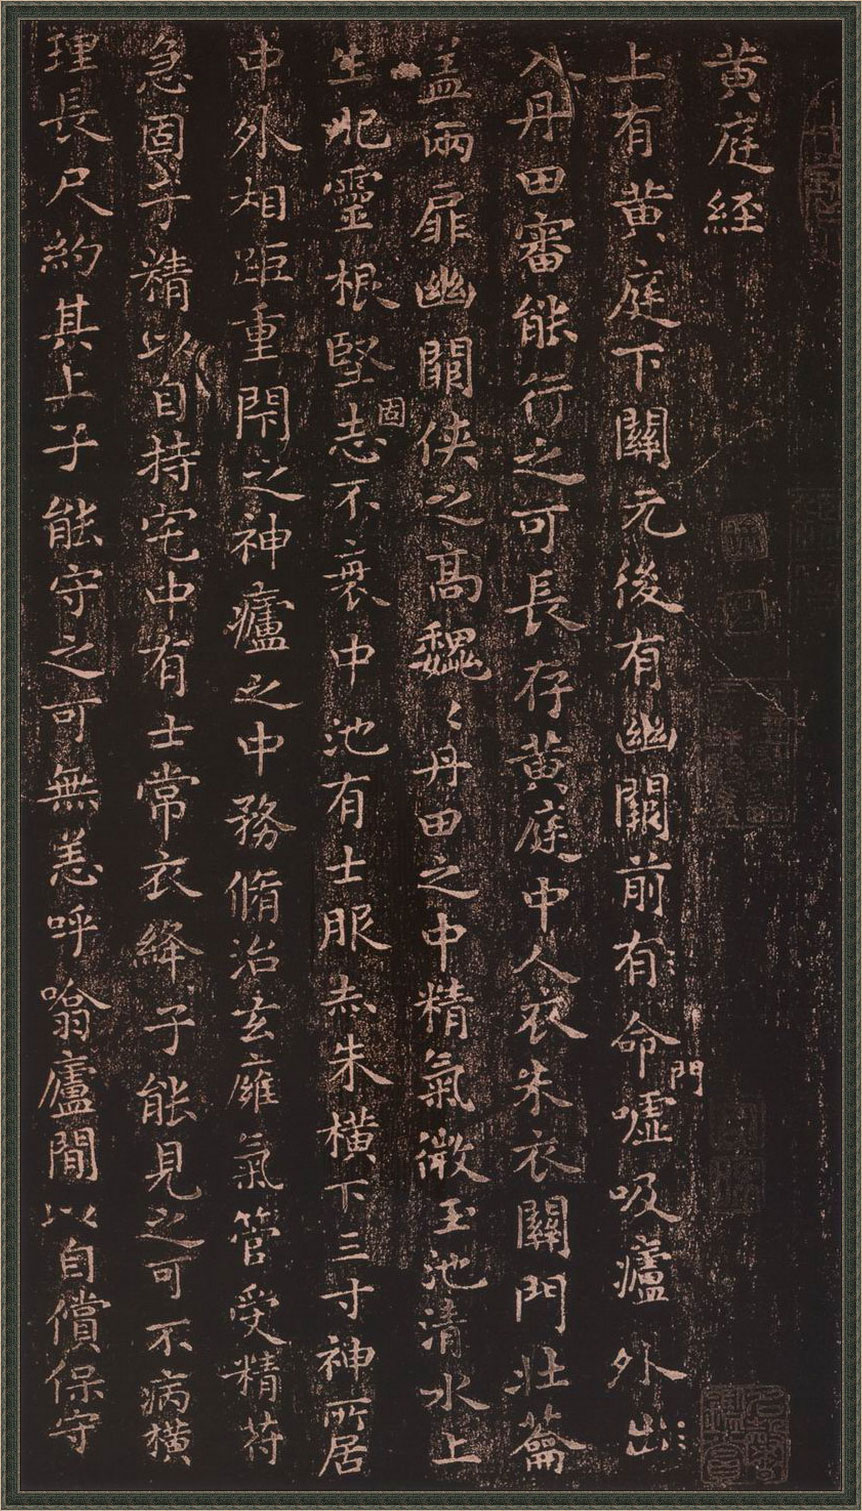 黄庭経
上有黄庭下關元後有幽闕前有命門噓吸廬外出
入丹田審能行之可長存黄庭中人衣朱衣關門壯蘥
盖兩扉幽闕俠之高魏〻丹田之中精氣微玉池清水上
生肥靈根堅固志不衰中池有士服赤朱橫下三寸神所居
中外相距重閇之神廬之中務脩治玄廱氣管受精符
急固子精以自持宅中有士常衣絳子能見之可不病橫
理長尺約其上子能守之可無恙呼噏廬間以自償保守